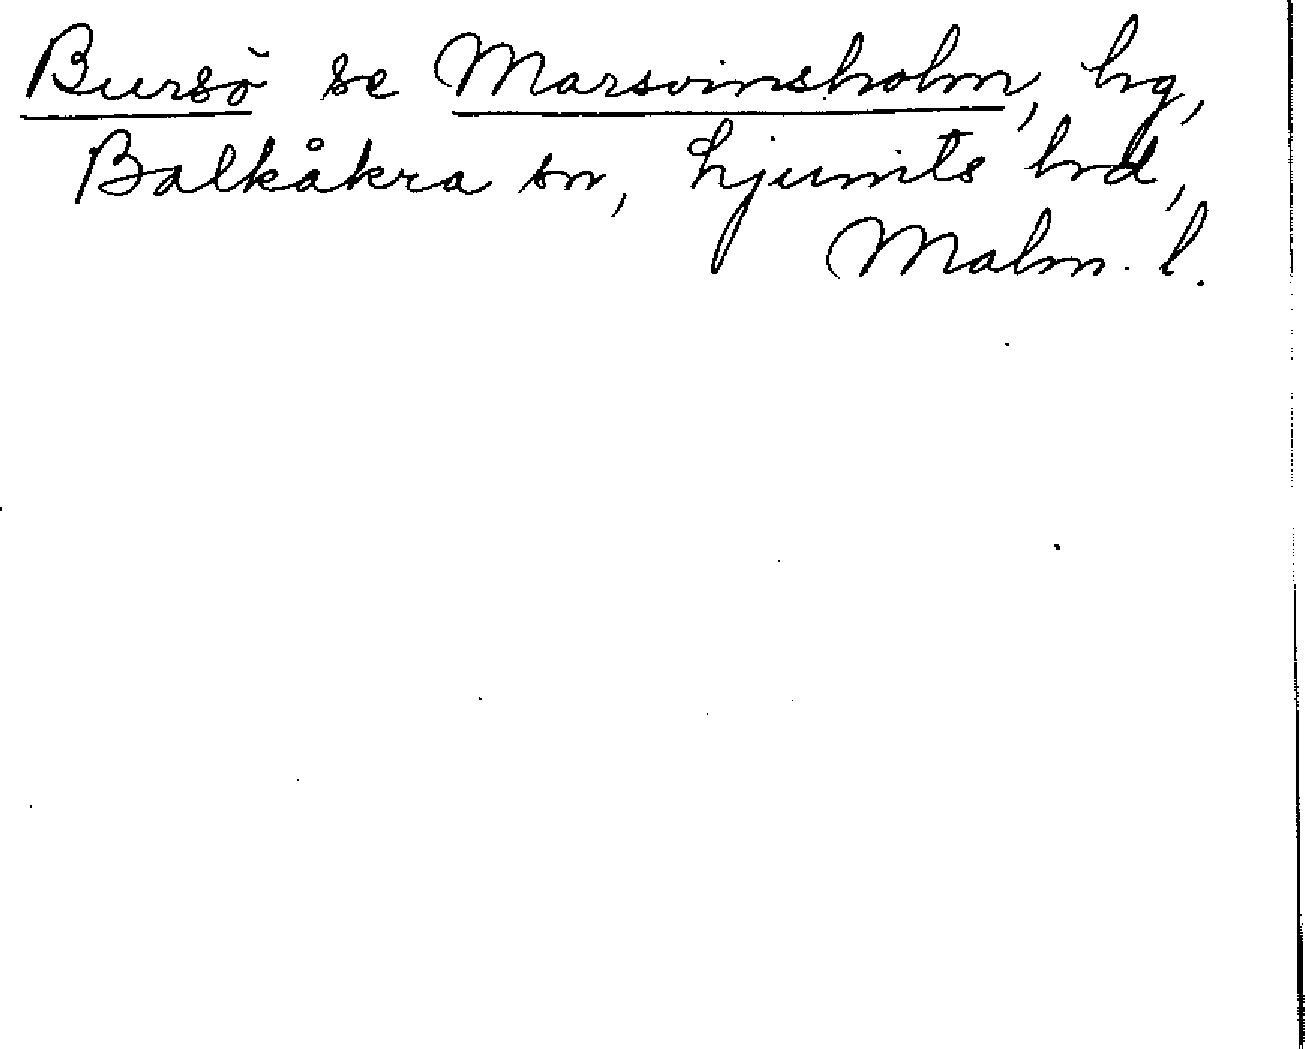 Bursö se Marsvinsholm, hg,
Balkåkra sn, Ljunits hd,
Malm. l.